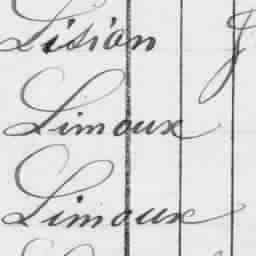 Lision J
Limoux
Limoux